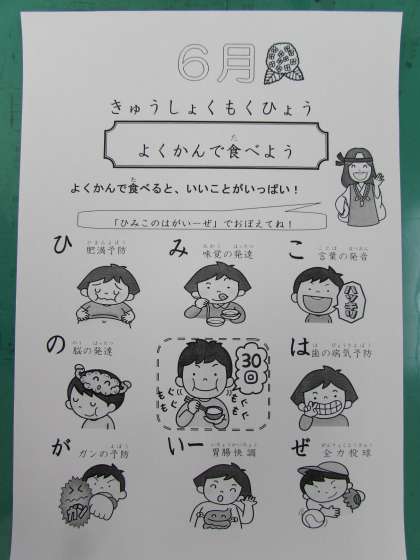 6月
きゅうしょくもくひょう
よくかんで食べよう
よくかんで食べると、いいことがいっぱい！
「ひみこのはがいーぜ」でおぼえてね！
ひ 肥満予防
み 味覚の発達
こ 言葉の発音
ハッキリ
の 脳の発達
30回
もぐもぐ
もぐもぐ
は 歯の病気予防
が ガンの予防
ガン
いー 胃腸快調
ぜ 全力投球